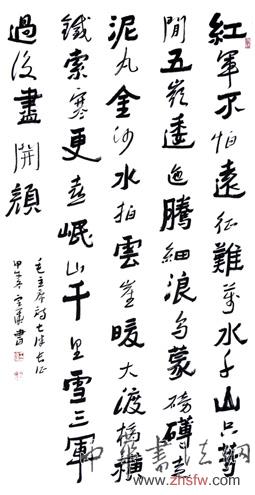 紅軍不怕遠征難萬水千山只等
閒五嶺逶迤騰細浪烏蒙磅礴走
泥丸金沙水拍雲崖暖大渡橋橫
鐵索寒更喜岷山千里雪三軍
過後盡開顏
毛主席詩七律長征
甲午書
中華書法網
www.zhsfw.com